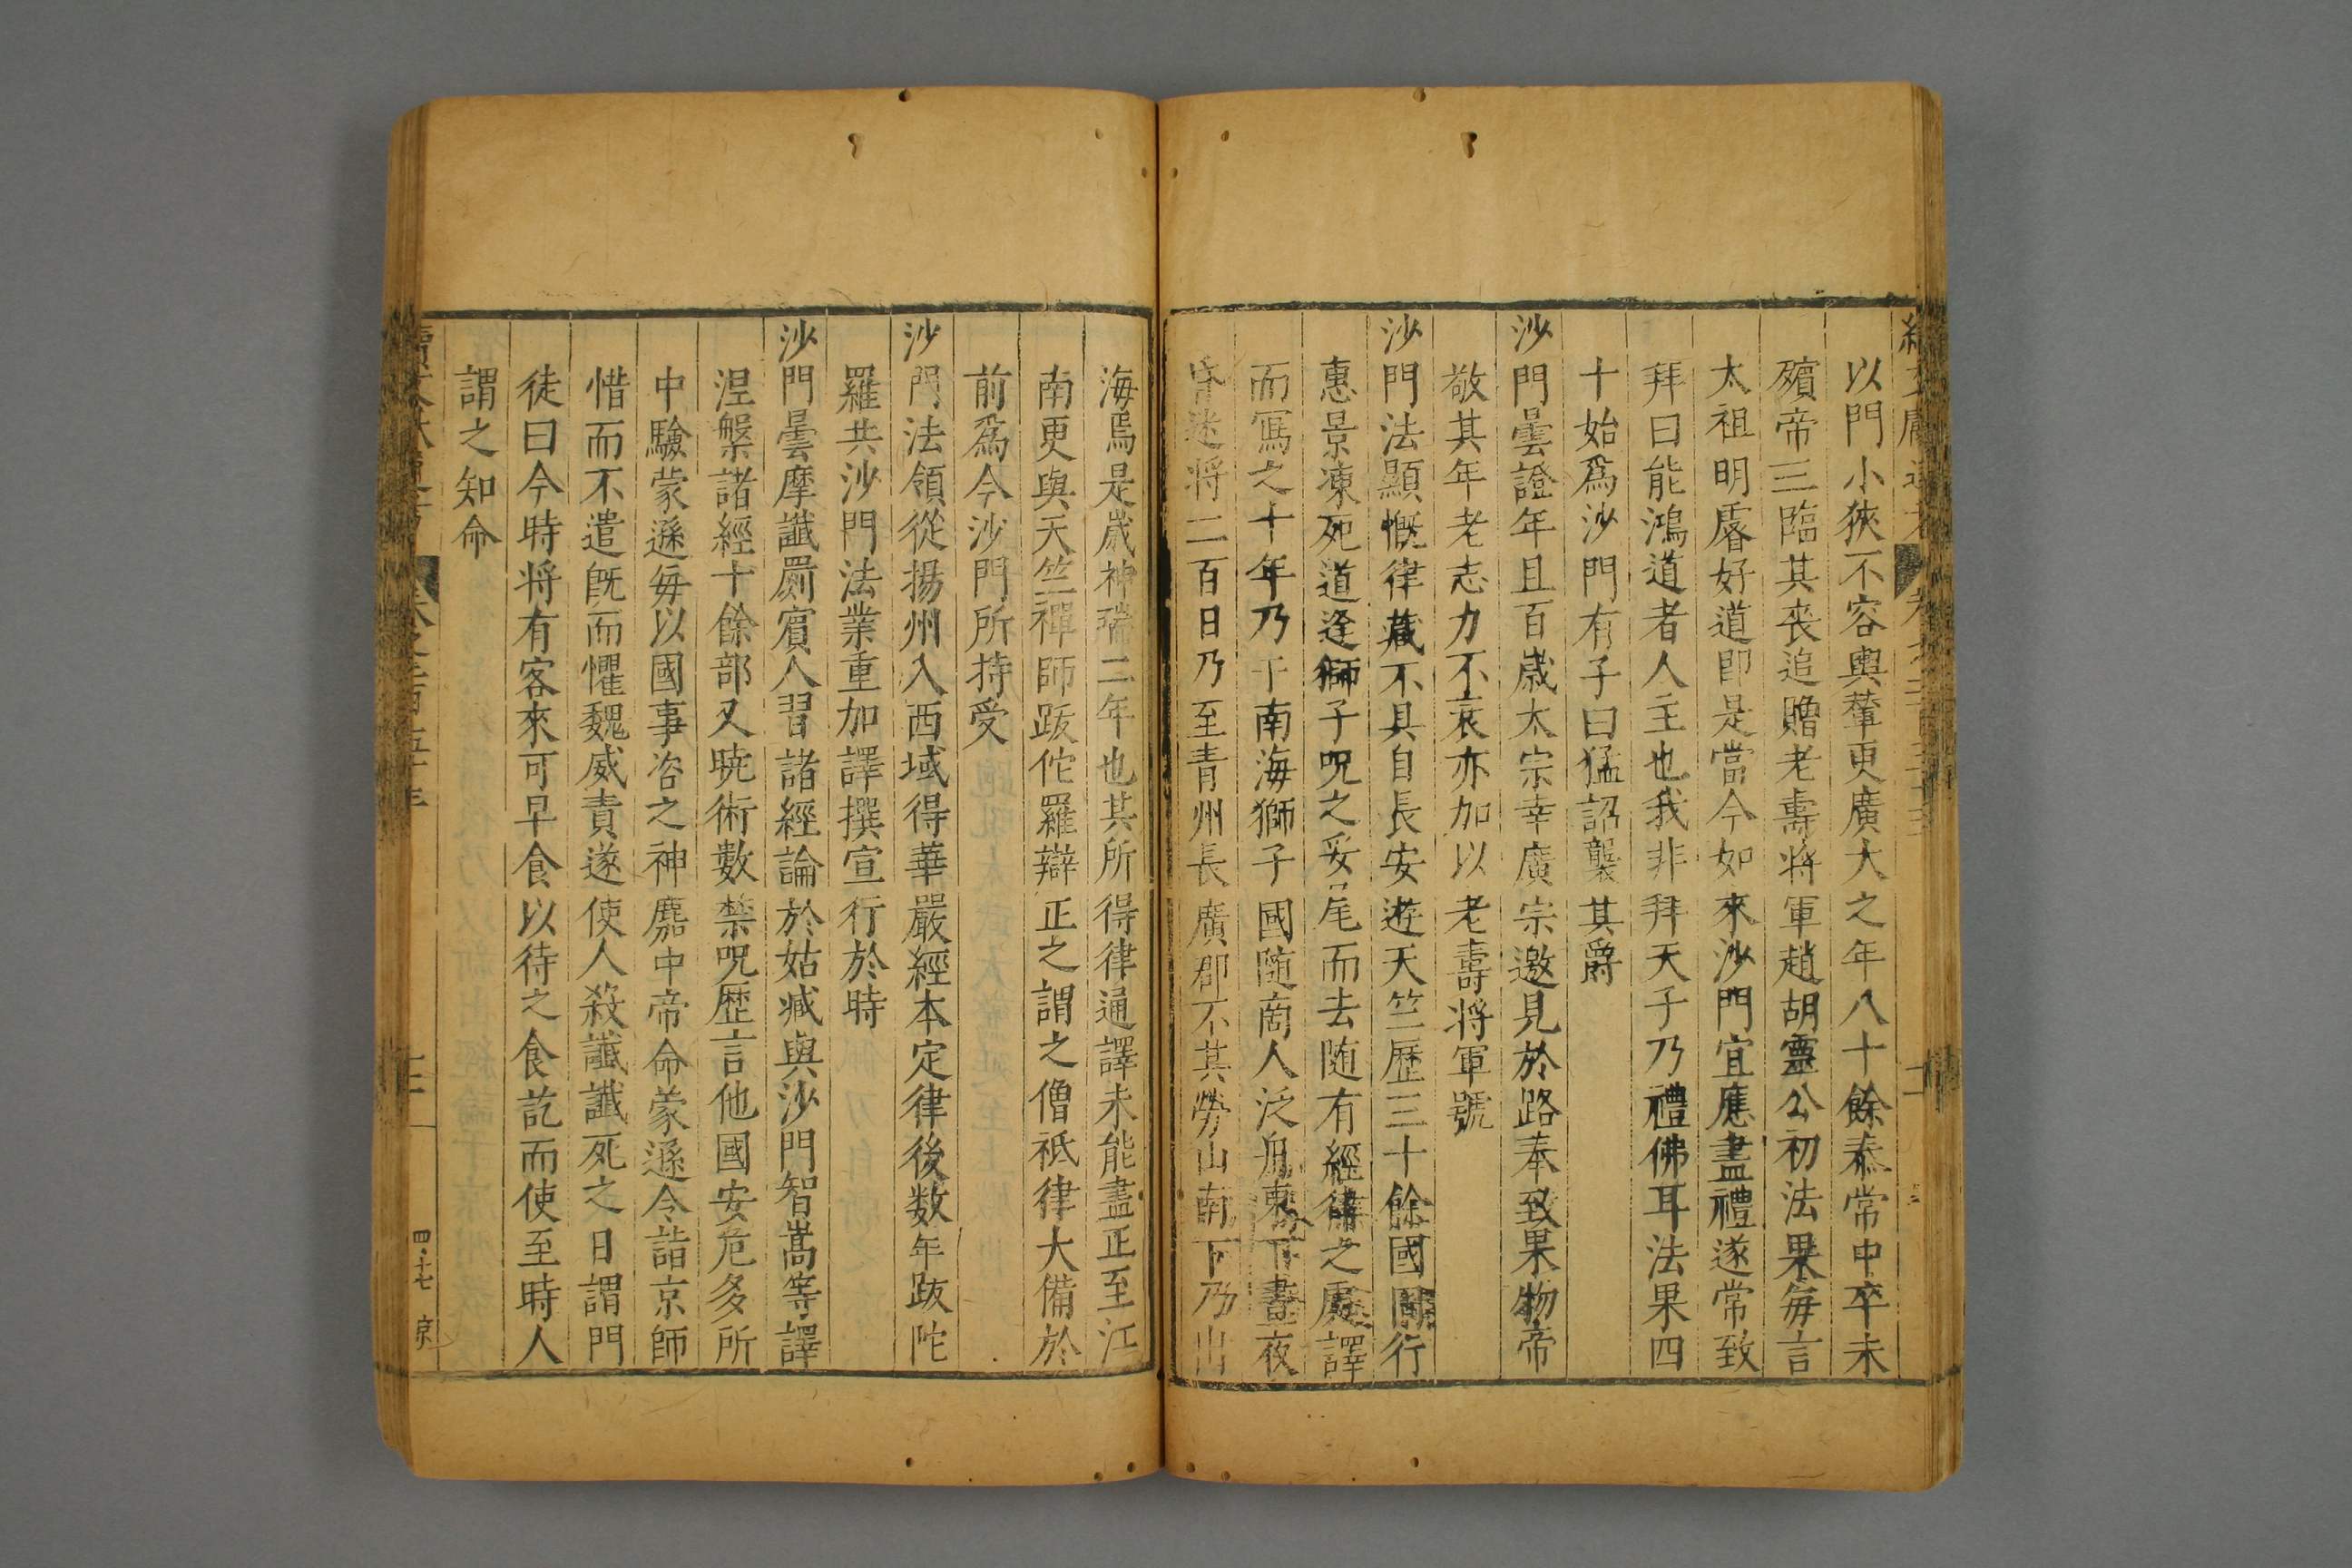 以門小狹不容輿輦更廣大之年八十餘泰常中卒未
殯帝三臨其喪追贈老壽將軍趙胡靈公初法果每言
太祖明睿好道即是當今如來沙門宜應盡禮遂常致
拜曰能鴻道者人主也我非拜天子乃禮佛耳法果四
十始爲沙門有子曰猛詔襲其爵
沙門曇證年且百歳太宗幸廣宗邀見於路奉致果物帝
敬其年老志力不衰亦加以老壽將軍號
沙門法顯慨律藏不具自長安遊天竺歷三十餘國行
惠景凍死道逢獅子呪之妥尾而去随有經律之處譯
而寫之十年乃于南海獅子國随商人泛舟東下晝夜
昏迷將二百日乃至青州長廣郡不其勞山南下乃出
海焉是歳神瑞二年也其所得律通譯未能盡正至江
南更與天竺禪師跋佗羅辯正之謂之僧祗律大備於
前爲今沙門所持受
沙門法領從揚州入西域得華嚴經本定律後数年跋陀
羅共沙門法業重加譯撰宣行於時
沙門曇摩讖罽賓人習諸經論於姑臧與沙門智嵩等譯
涅槃諸經十餘部又曉術數禁呪歷言他國安危多所
中驗蒙遜每以國事咨之神䴥中帝命蒙遜令詣京師
惜而不遣旣而懼魏威責遂使人殺讖讖死之日謂門
徒曰今時將有客來可早食以待之食訖而使至時人
謂之知命
四・十七 京